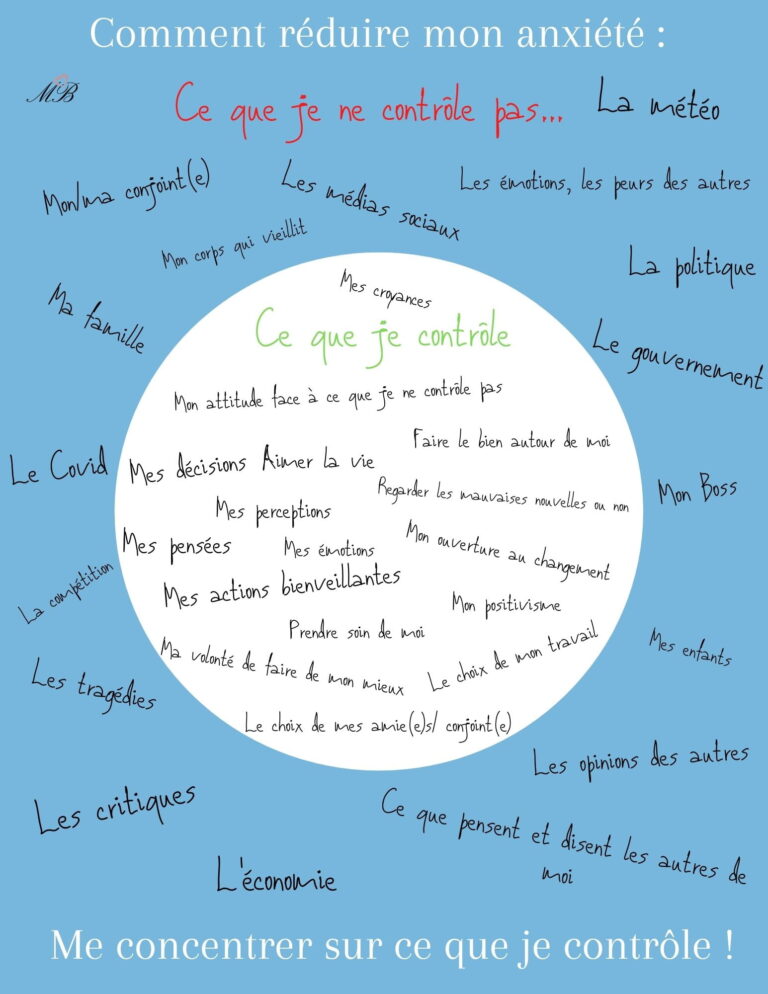 Comment réduire mon anxiété :
MB
Ce que je ne contrôle pas...
La météo
Mon/ma conjoint(e)
Les médias sociaux
Les émotions, les peurs des autres
Mon corps qui vieillit
La politique
Ma famille
Mes croyances
Ce que je contrôle
Le gouvernement
Mon attitude face à ce que je ne contrôle pas
Faire le bien autour de moi
Le Covid
Mes décisions
Aimer la vie
Regarder les mauvaises nouvelles ou non
Mon Boss
Mes perceptions
Mes pensées
Mes émotions
Mon ouverture au changement
La compétition
Mes actions bienveillantes
Mon positivisme
Prendre soin de moi
Mes enfants
Ma volonté de faire de mon mieux
Le choix de mon travail
Les tragédies
Le choix de mes amie(e)s/ conjoint(e)
Les opinions des autres
Les critiques
Ce que pensent et disent les autres de
moi
L'économie
Me concentrer sur ce que je contrôle !